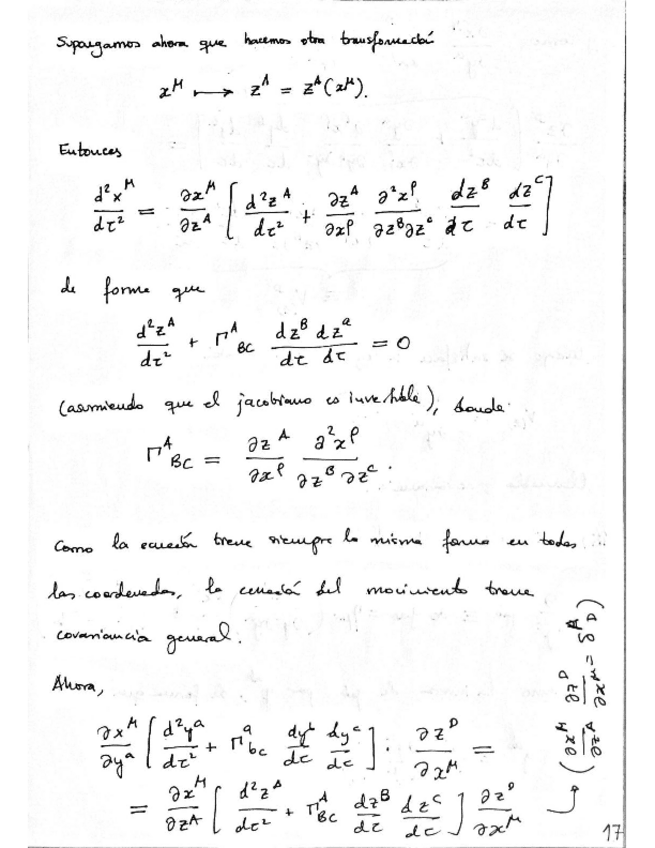 Supongamos ahora que hacemos otra transformación
x^μ ⟼ z^A = z^A(x^μ).
Entonces
d²x^μ/dτ² = ∂x^μ/∂z^A [ d²z^A/dτ² + ∂z^A/∂x^ρ ∂²x^ρ/∂z^B∂z^C dz^B/dτ dz^C/dτ ]
de forma que
d²z^A/dτ² + Γ^A_BC dz^B/dτ dz^C/dτ = 0
(asumiendo que el jacobiano es invertible), donde
Γ^A_BC = ∂z^A/∂x^ρ ∂²x^ρ/∂z^B ∂z^C.
Como la ecuación tiene siempre la misma forma en todas
las coordenadas, la ecuación del movimiento tiene
covariancia general.
Ahora,
∂x^μ/∂y^a [ d²y^a/dτ² + Γ^a_bc dy^b/dτ dy^c/dτ ] · ∂z^D/∂x^μ =
= ∂x^μ/∂z^A [ d²z^A/dτ² + Γ^A_BC dz^B/dτ dz^C/dτ ] ∂z^D/∂x^μ
(∂x^μ/∂z^A ∂z^D/∂x^μ = δ^D_A)
17